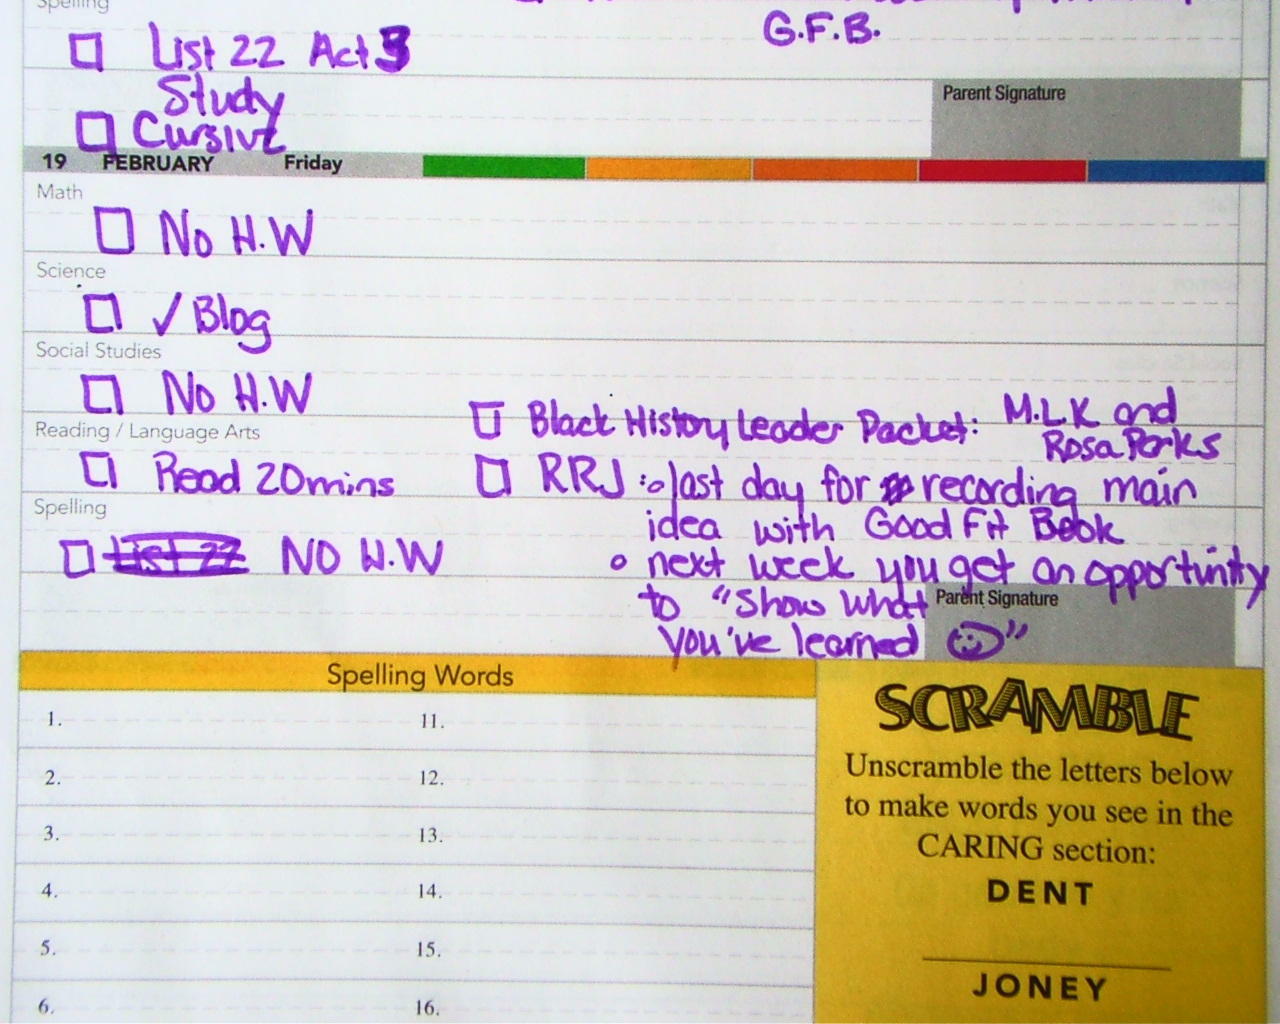 Spelling
G.F.B.
List 22 Act 3
Study
Cursive
Parent Signature
19 FEBRUARY Friday
Math
No H.W
Science
✓ Blog
Social Studies
No H.W
Black History Leader Packet: M.L.K and
Rosa Parks
Reading / Language Arts
Read 20mins
RRJ: last day for recording main
idea with Good Fit Book
Spelling
List 22 NO H.W
next week you get an opportunity
to "Show What
you've learned ☺"
Parent Signature
Spelling Words
1. 11.
2. 12.
3. 13.
4. 14.
5. 15.
6. 16.
SCRAMBLE
Unscramble the letters below
to make words you see in the
CARING section:
DENT
JONEY